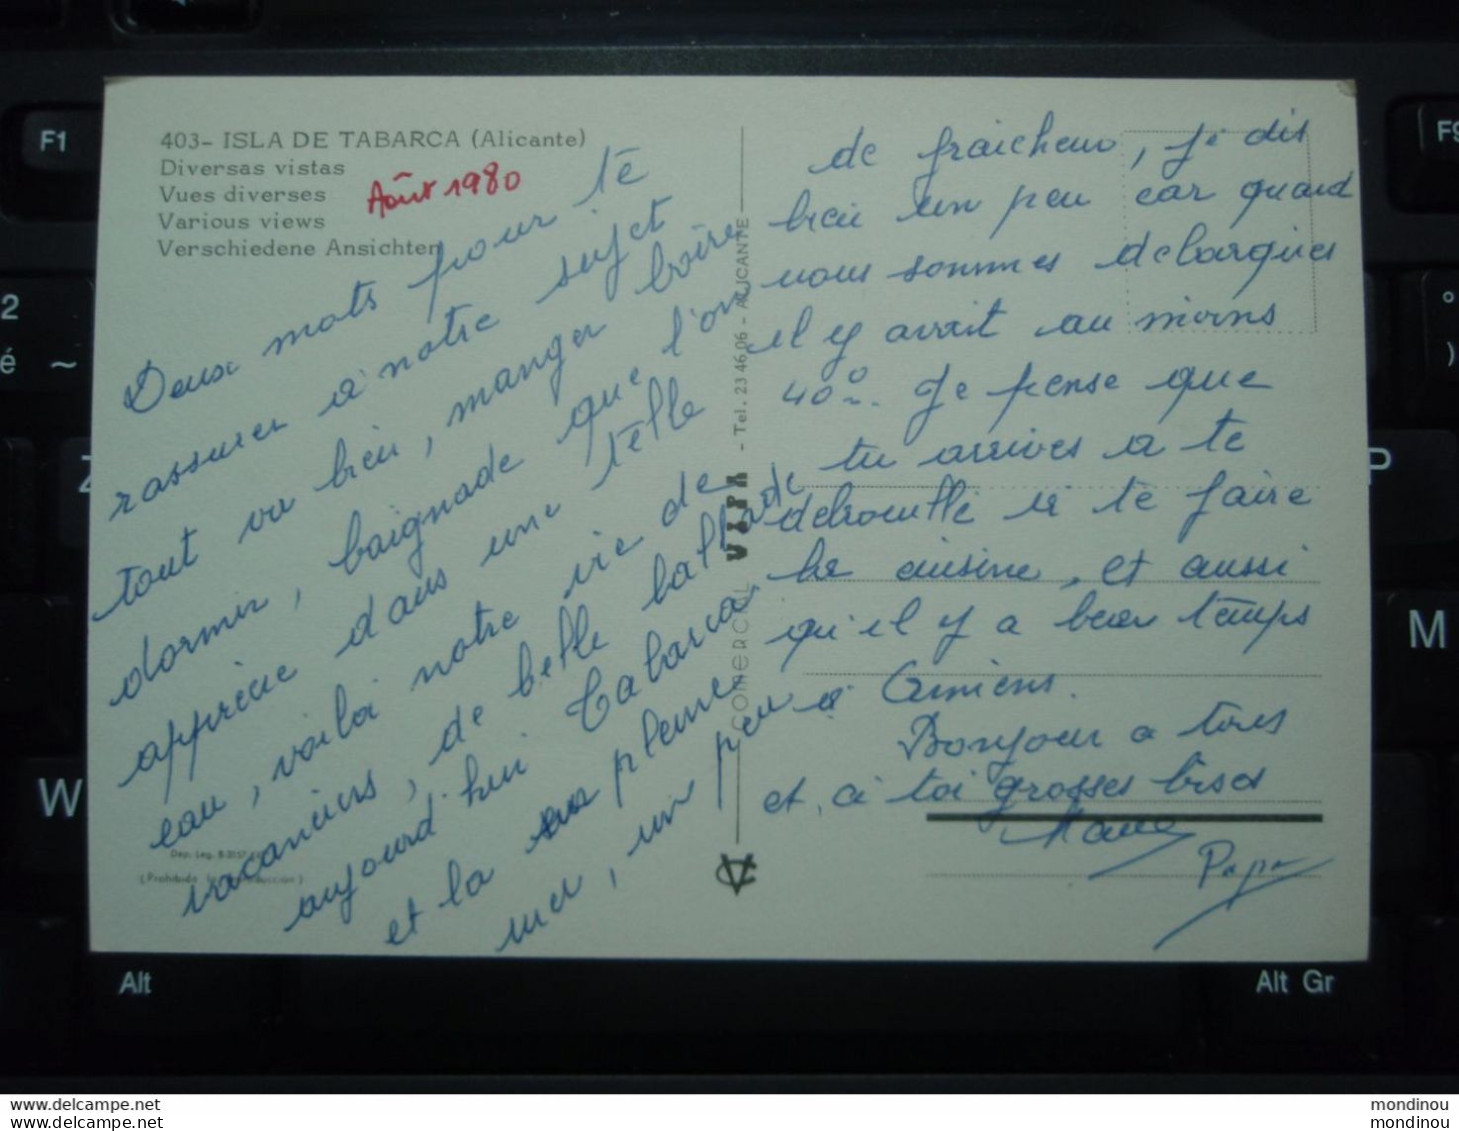 403- ISLA DE TABARCA (Alicante)
Diversas vistas
Vues diverses
Various views
Verschiedene Ansichten
Août 1980
Deux mots pour te
rassurer à notre sujet
tout va bien, manger boire
dormir, baignade que l'on
apprécie dans une telle
eau, voilà notre vie de
vacanciers, de belle ballade
aujourd'hui Tabarca
et la pleine
mer, un peu
de fraicheur, je dis
bien un peu car quand
nous sommes debarqués
il y avait au moins
40°. Je pense que
tu arrives a te
debrouille à te faire
la cuisine, et aussi
qu'il y a beau temps
à Amiens.
Bonjour a tous
et à toi grosses bises
Papa
COMERCIAL VIPA - Tel. 23 46 06 - ALICANTE
Dep. Leg. B.
(Prohibida la reproducción)
F1
F9
2
é ~
°
)
Z
P
W
M
Alt
Alt Gr
mondinou.com
mondinou.com
mondinou
mondinou